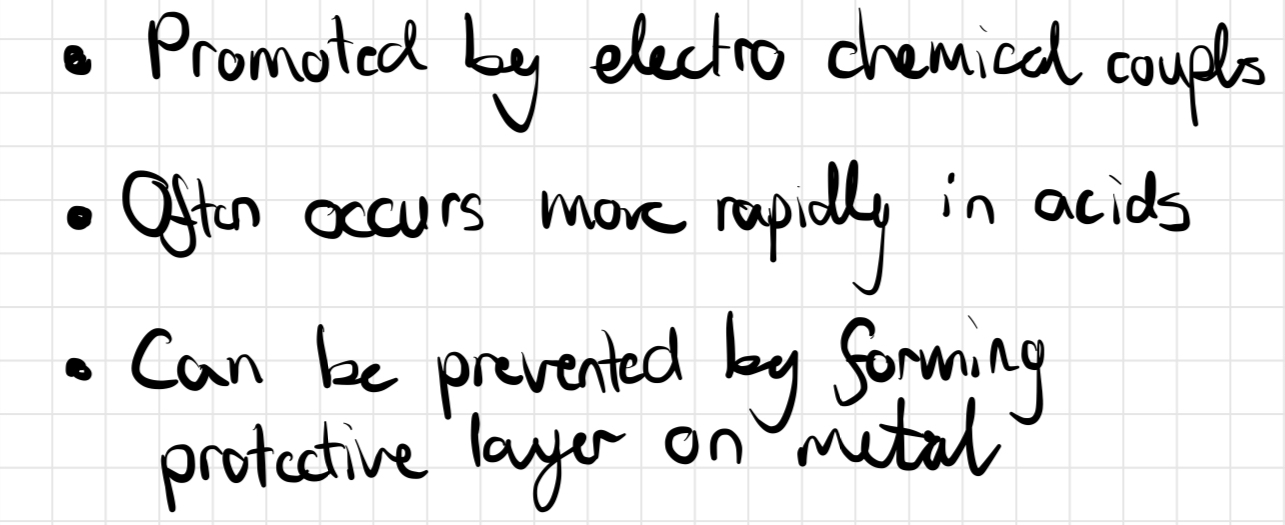 • Promoted by electro chemical couples
• Often occurs more rapidly in acids
• Can be prevented by forming
protective layer on metal